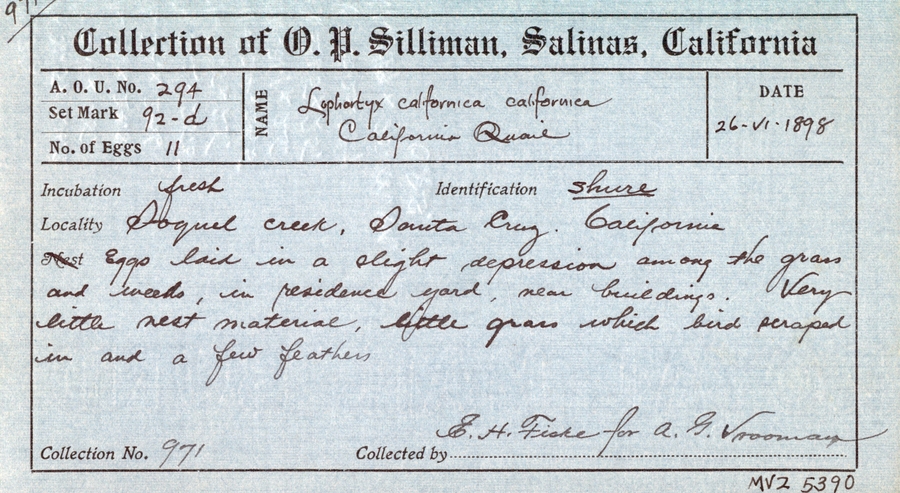 971
Collection of O. P. Silliman, Salinas, California
A. O. U. No. 294
Set Mark 92-d
No. of Eggs 11
NAME
Lophortyx californica californica
California Quail
DATE
26-VI-1898
Incubation fresh Identification shure
Locality Soquel creek, Santa Cruz. California
Nest Eggs laid in a slight depression among the grass
and weeds, in residence yard, near buildings. Very
little nest material, little grass which bird scraped
in and a few feathers
E. H. Fiske for A. G. Vrooman
Collection No. 971 Collected by
MVZ 5390